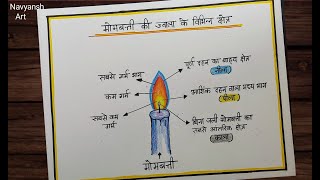 Navyansh
Art
मोमबत्ती की ज्वाला के विभिन्न क्षेत्र
सबसे गर्म भाग
पूर्ण दहन का बाह्य क्षेत्र
नीला
कम गर्म
आंशिक दहन वाला मध्य भाग
पीला
सबसे कम
गर्म
बिना जली मोमबत्ती का
सबसे आंतरिक क्षेत्र
काला
मोमबत्ती